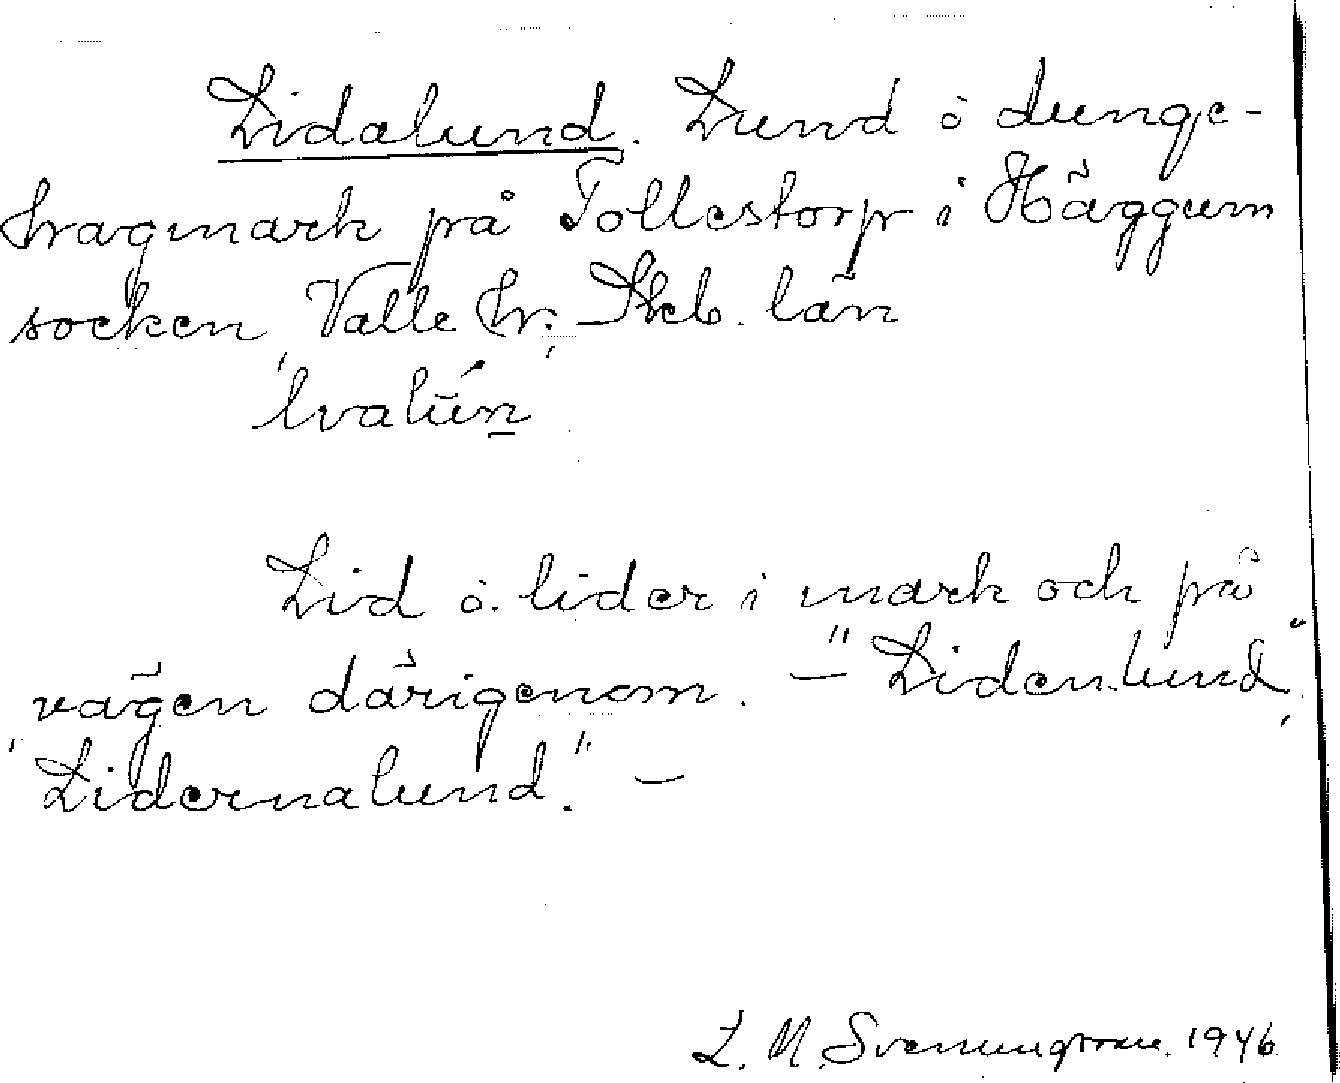 Lidalund. Lund ö dunge-
hvagmark på Tollestorp i Häggum
socken, Valle hr., Skb. län
lvalún

Lid o. lider i mark och på
vägen därigenom. — "Lidenlund",
"Lidernalund." —
L. N. Svenungsson. 1946